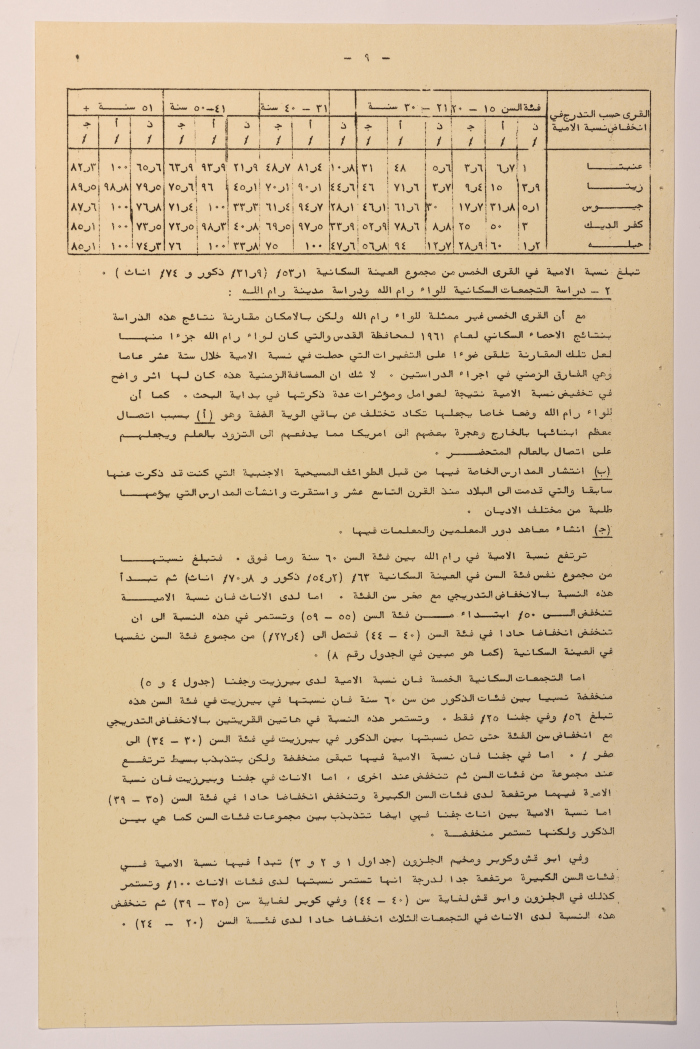 - ٩ -
٩
القرى حسب التدرج في انخفاض نسبة الامية | فئة السن ١٥ - ٢٠ | ٢١ - ٣٠ سنة | ٣١ - ٤٠ سنة | ٤١-٥٠ سنة | ٥١ سنة +
ذ أ ج ذ أ ج ذ أ ج ذ أ ج ذ أ ج
٪ ٪ ٪ ٪ ٪ ٪ ٪ ٪ ٪ ٪ ٪ ٪ ٪ ٪ ٪
عنبتا ١ ٦ر٧ ٦ر٣ ٦ر٥ ٤٨ ٣١ ٨ر١٠ ٤ر٨١ ٧ر٤٨ ٩ر٢١ ٩ر٩٣ ٩ر٦٣ ٦ر٦٥ ١٠٠ ٣ر٨٢
زيتا ٣ر٩ ١٥ ٩ر٤ ٣ر٧ ٦ر٧١ ٤٦ ٦ر٤٤ ١ر٩٠ ١ر٧٠ ١ر٤٥ ٩٦ ٦ر٧٥ ٥ر٧٩ ٨ر٩٨ ٥ر٨٩
جيوس ٥ر١ ٨ر٣١ ٧ر١٧ ٣٠ ٦ر٦١ ١ر٤٦ ١ر٢٨ ٧ر٩٤ ٤ر٦١ ٣ر٣٣ ١٠٠ ٤ر٧١ ٨ر٧٦ ١٠٠ ٦ر٨٧
كفر الديك ٣ ٥٠ ٢٥ ٨ر٨ ٦ر٧٨ ٩ر٥٢ ٩ر٣٣ ٥ر٩٧ ٥ر٦٩ ٨ر٤٠ ٣ر٩٨ ٥ر٧٢ ٥ر٧٣ ١٠٠ ١ر٨٥
حبله ١ر٢ ٦٠ ٩ر٢٨ ٧ر١٢ ٩٤ ٨ر٥٦ ٦ر٤٧ ١٠٠ ٧٥ ٨ر٣٣ ١٠٠ ٧٦ ٣ر٧٤ ١٠٠ ١ر٨٥
تبلغ نسبة الامية في القرى الخمس من مجموع العينة السكانية ١ر٥٣٪ (٩ر٣١٪ ذكور و ٧٤٪ اناث) .
٢ - دراسة التجمعات السكانية للواء رام الله ودراسة مدينة رام الله :
مع أن القرى الخمس غير ممثلة للواء رام الله ولكن بالامكان مقارنة نتائج هذه الدراسة
بنتائج الاحصاء السكاني لعام ١٩٦١ لمحافظة القدس والتي كان لواء رام الله جزءا منها
لعل تلك المقارنة تلقى ضوءا على التغيرات التي حطت في نسبة الامية خلال ستة عشر عاما
وهي الفارق الزمني في اجراء الدراستين . لا شك ان المسافة الزمنية هذه كان لها اثر واضح
في تخفيض نسبة الامية نتيجة لعوامل ومؤثرات عدة ذكرتها في بداية البحث . كما أن
للواء رام الله وضعا خاصا يجعلها تكاد تختلف عن باقي الوية الضفة وهو (أ) بسبب اتصال
معظم ابنائها بالخارج وهجرة بعضهم الى امريكا مما يدفعهم الى التزود بالعلم ويجعلهم
على اتصال بالعالم المتحضر .
(ب) انتشار المدارس الخاصة فيها من قبل الطوائف المسيحية الاجنبية التي كنت قد ذكرت عنها
سابقا والتي قدمت الى البلاد منذ القرن التاسع عشر واستقرت وانشأت المدارس التي يؤمها
طلبة من مختلف الاديان .
(ج) انشاء معاهد دور المعلمين والمعلمات فيها .
ترتفع نسبة الامية في رام الله بين فئة السن ٦٠ سنة وما فوق . فتبلغ نسبتها
من مجموع نفس فئة السن في العينة السكانية ٦٣٪ (٢ر٥٤٪ ذكور و ٨ر٧٠٪ اناث) ثم تبدأ
هذه النسبة بالانخفاض التدريجي مع صغر سن الفئة . اما لدى الاناث فان نسبة الامية
تنخفض الى ٥٠٪ ابتداء من فئة السن (٥٥ - ٥٩) وتستمر في هذه النسبة الى ان
تنخفض انخفاضا حادا في فئة السن (٤٠ - ٤٤) فتصل الى (٤ر٢٧٪) من مجموع فئة السن نفسها
في العينة السكانية (كما هو مبين في الجدول رقم ٨) .
اما التجمعات السكانية الخمسة فان نسبة الامية لدى بيرزيت وجفنا (جدول ٤ و ٥)
منخفضة نسبيا بين فئات الذكور من سن ٦٠ سنة فان نسبتها في بيرزيت في فئة السن هذه
تبلغ ٥٦٪ وفي جفنا ٢٥٪ فقط . وتستمر هذه النسبة في هاتين القريتين بالانخفاض التدريجي
مع انخفاض سن الفئة حتى تصل نسبتها بين الذكور في بيرزيت في فئة السن (٣٠ - ٣٤) الى
صفر ٪ . اما في جفنا فان نسبة الامية فيها تبقى منخفضة ولكن بتذبذب بسيط ترتفع
عند مجموعة من فئات السن ثم تنخفض عند اخرى ، اما الاناث في جفنا وبيرزيت فان نسبة
الامرة فيهما مرتفعة لدى فئات السن الكبيرة وتنخفض انخفاضا حادا في فئة السن (٣٥ - ٣٩)
اما نسبة الامية بين اناث جفنا فهي ايضا تتذبذب بين مجموعات فئات السن كما هي بين
الذكور ولكنها تستمر منخفضة .
وفي ابو قش وكوبر ومخيم الجلزون (جداول ١ و ٢ و ٣) تبدأ فيها نسبة الامية في
فئات السن الكبيرة مرتفعة جدا لدرجة انها تستمر نسبتها لدى فئات الاناث ١٠٠٪ وتستمر
كذلك في الجلزون وابو قش لغاية سن (٤٠ - ٤٤) وفي كوبر لغاية سن (٣٥ - ٣٩) ثم تنخفض
هذه النسبة لدى الاناث في التجمعات الثلاث انخفاضا حادا لدى فئة السن (٢٠ - ٢٤) .